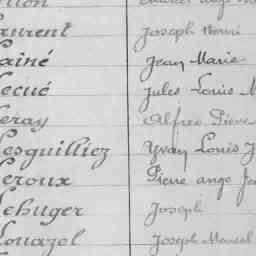 Laurent Joseph Henri
Lainé Jean Marie
Lecué Jules Louis M
Leray Alfred Pierre
Lesguilliez Yvan Louis J
Leroux Pierre ange
Lehuger Joseph
Louazel Joseph Marcel